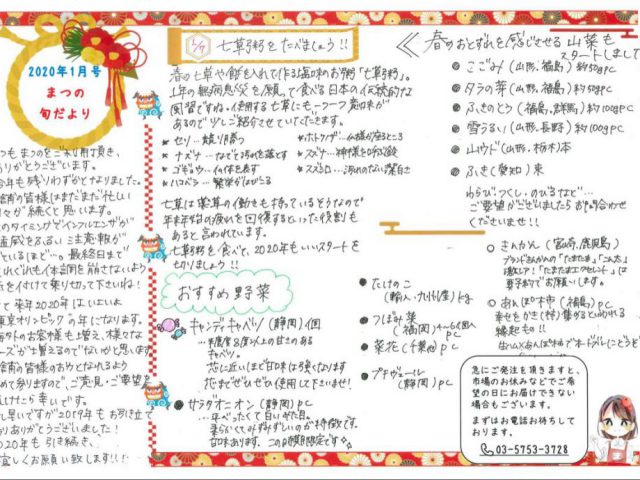 2020年1月号
まつの
旬だより
いつもまつのをご利用頂き、
ありがとうございます。
今年も残りわずかとなりました。
々が続くと思います。
このタイミングでインフルエンザが
猛威をふるい注意報が
ているほど…。最終日まで
それぞれも体調を崩さないよう
気を付けて乗り切って下さいね!
て来年2020年はいよいよ
東京オリンピックの年になります。
ニーズが増えるのでないかと思います
めて参りますので、ご意見・ご要望を
頂けたら幸いです。
し早いですが2019年もお引き立て
ありがとうございました!
2020年も引き続き、
宜しくお願い致します!!!
1/7 七草粥をたべましょう!!
春の七草や餅を入れて作る塩味のお粥「七草粥」。
1年の無病息災を願って食べる日本の伝統的な
風習ですね。使用する七草にも一つ一つ意味が
あるので少しご紹介させていただきます。
★セリ…競り勝つ
★ナズナ…なでて汚れを落とす
★ゴギョウ…仏の体を表す
★ハコベラ…繁栄がはびこる
★ホトケノザ…仏様が座るところ
★スズナ…神様を呼ぶ鈴
★スズシロ…汚れのない潔白さ
七草は薬草の働きも持っているそうなので
年末年始の疲れを回復するといった役割も
あると言われています。
七草粥を食べて、2020年もいいスタートを
切りましょう!!
おすすめ野菜
キャンディキャベツ(静岡)1個
…糖度8度以上の甘さのある
キャベツ。
芯に近いほど甘味は強くなります
芯までぜひぜひ使用して下さいませ!
●サラダオニオン(静岡)pc
…平べったくて白いのが目印。
柔らかくてみずみずしいのが特徴です。
甘味あります、この時期限定です
●たけのこ
(輸入・九州産)kg
●つぼみ菜
(福岡)4〜6個入
pc
●菜花(千葉他)pc
●プチヴェール
(静岡)pc
≪春のおとずれを感じさせる山菜も
スタートしました
●こごみ(山形、福島)約50gpc
●タラの芽(山形、福島)約50gpc
●ふきのとう(福島、群馬)約100gpc
●雪うるい(山形、長野)約100gpc
●山ウド(山形、栃木)本
●ふき(愛知)束
わらび、つくし、のびるなど…
ご要望がございましたらお問い合わせ
くださいませ!!
○きんかん(宮崎、鹿児島)
ブランドきんかんの「たまたま」「こん太」
○あんぽ柿(福島)pc
幸せをかき(柿)集めるといわれる
縁起もの!!
急にご発注を頂きますと、
市場のお休みなどでご希
望の日にお届けできない
場合もございます。
まずはお電話お待ちして
おります。
03-5753-3728